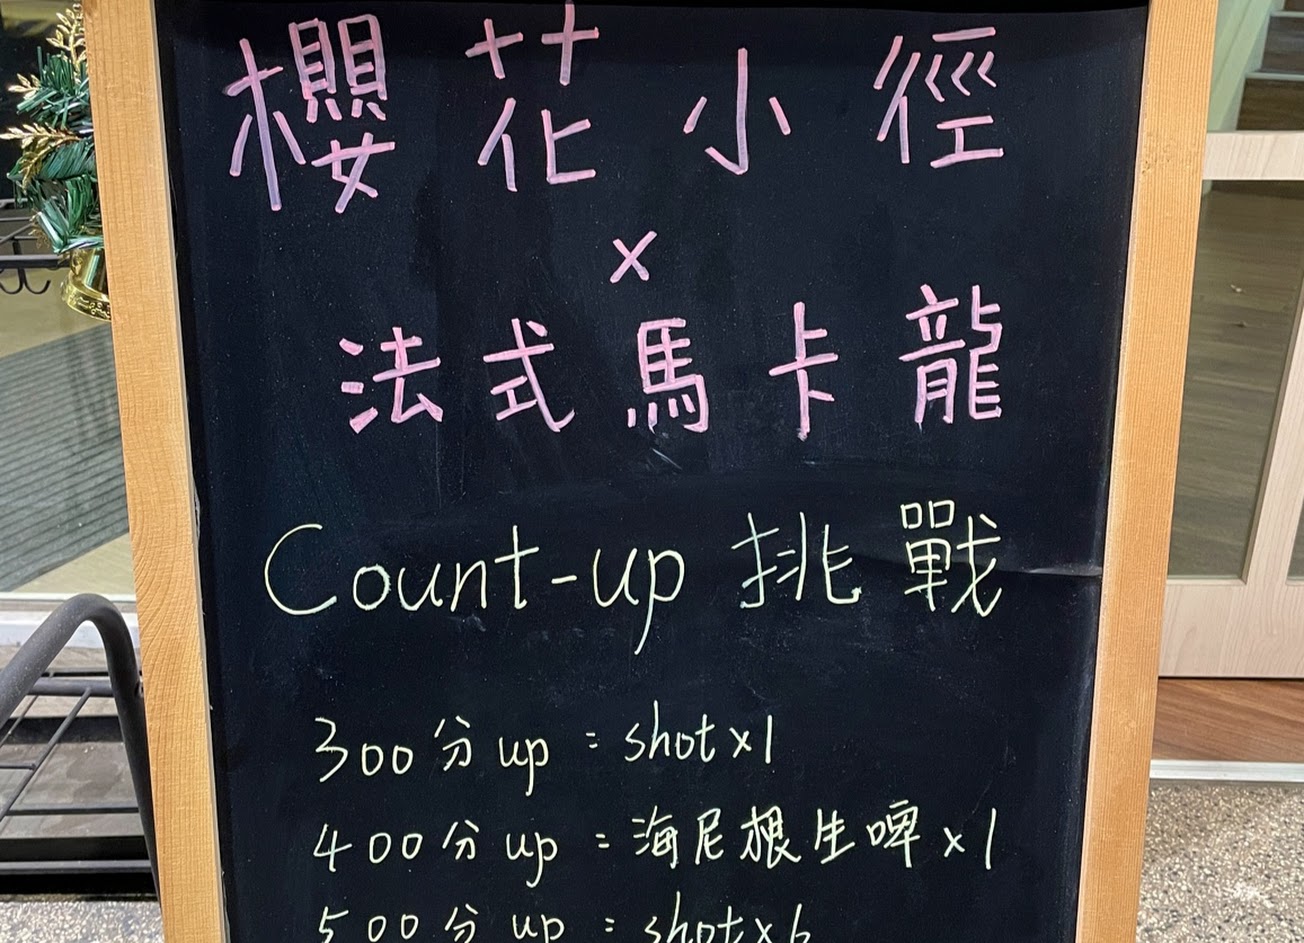 櫻花小徑
×
法式馬卡龍
Count-up 挑戰
300分 up = shot×1
400分 up = 海尼根生啤×1
500分 up = shot×6